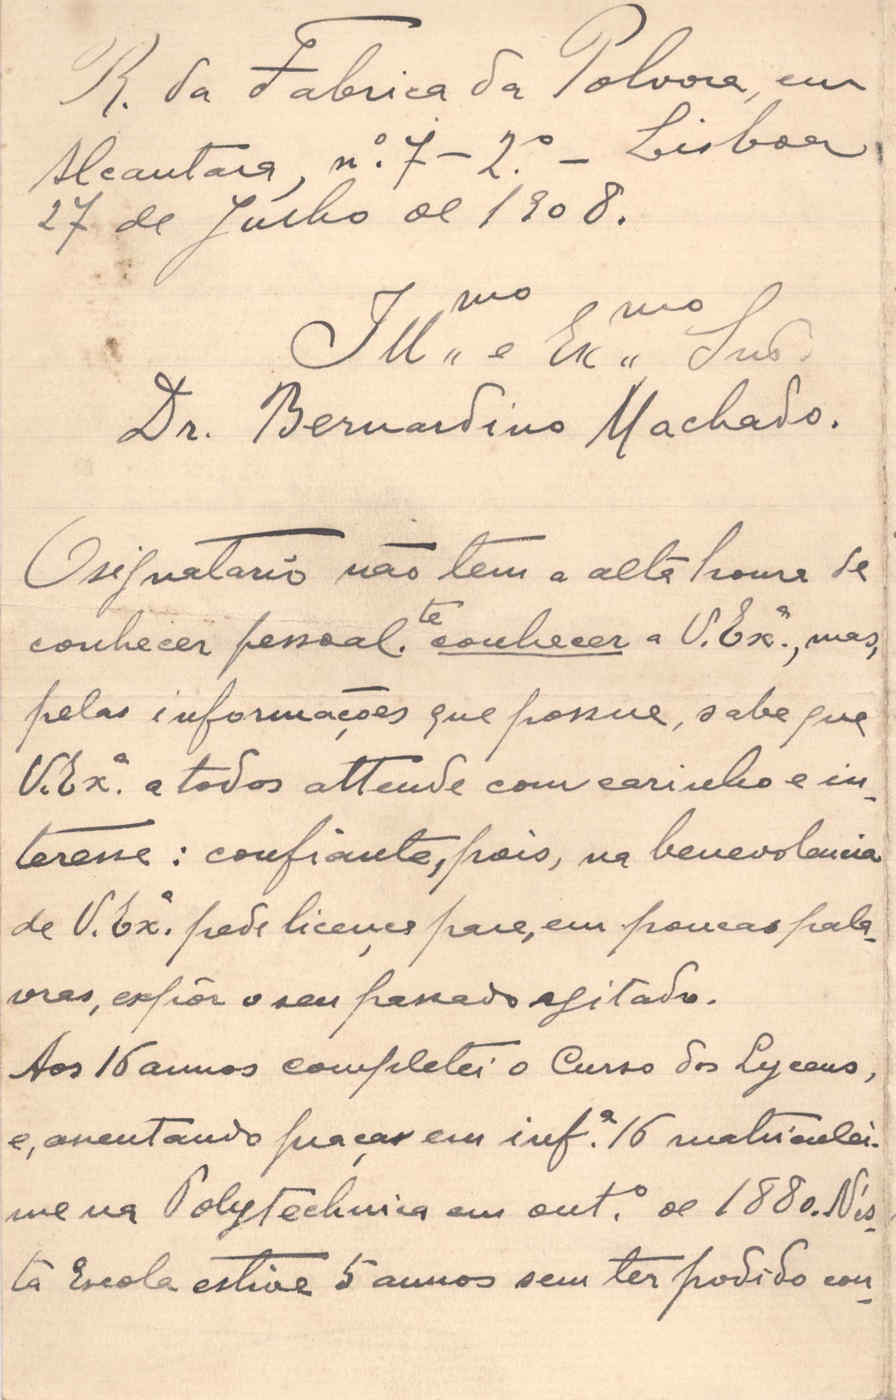 R. da Fabrica da Polvora, em
Alcantara, nº. 7 – 2.º – Lisboa
27 de Julho de 1908.
Illmo e Exmo Snr.
Dr. Bernardino Machado.
O signatario não tem a alta honra de
conhecer pessoal.te conhecer a V. Exª., mas,
pelas informações que possue, sabe que
V. Exª. a todos attende com carinho e in-
teresse: confiante, pois, na benevolencia
de V. Exª. pede licença para, em poucas pala-
vras, expôr o seu passado agitado.
Aos 16 annos completei o Curso dos Lyceus,
e, assentando praça em inf.ª 16 matriculei-
me na Polytechnica em out.º de 1880. Nes-
ta Escola estive 5 annos sem ter podido con-